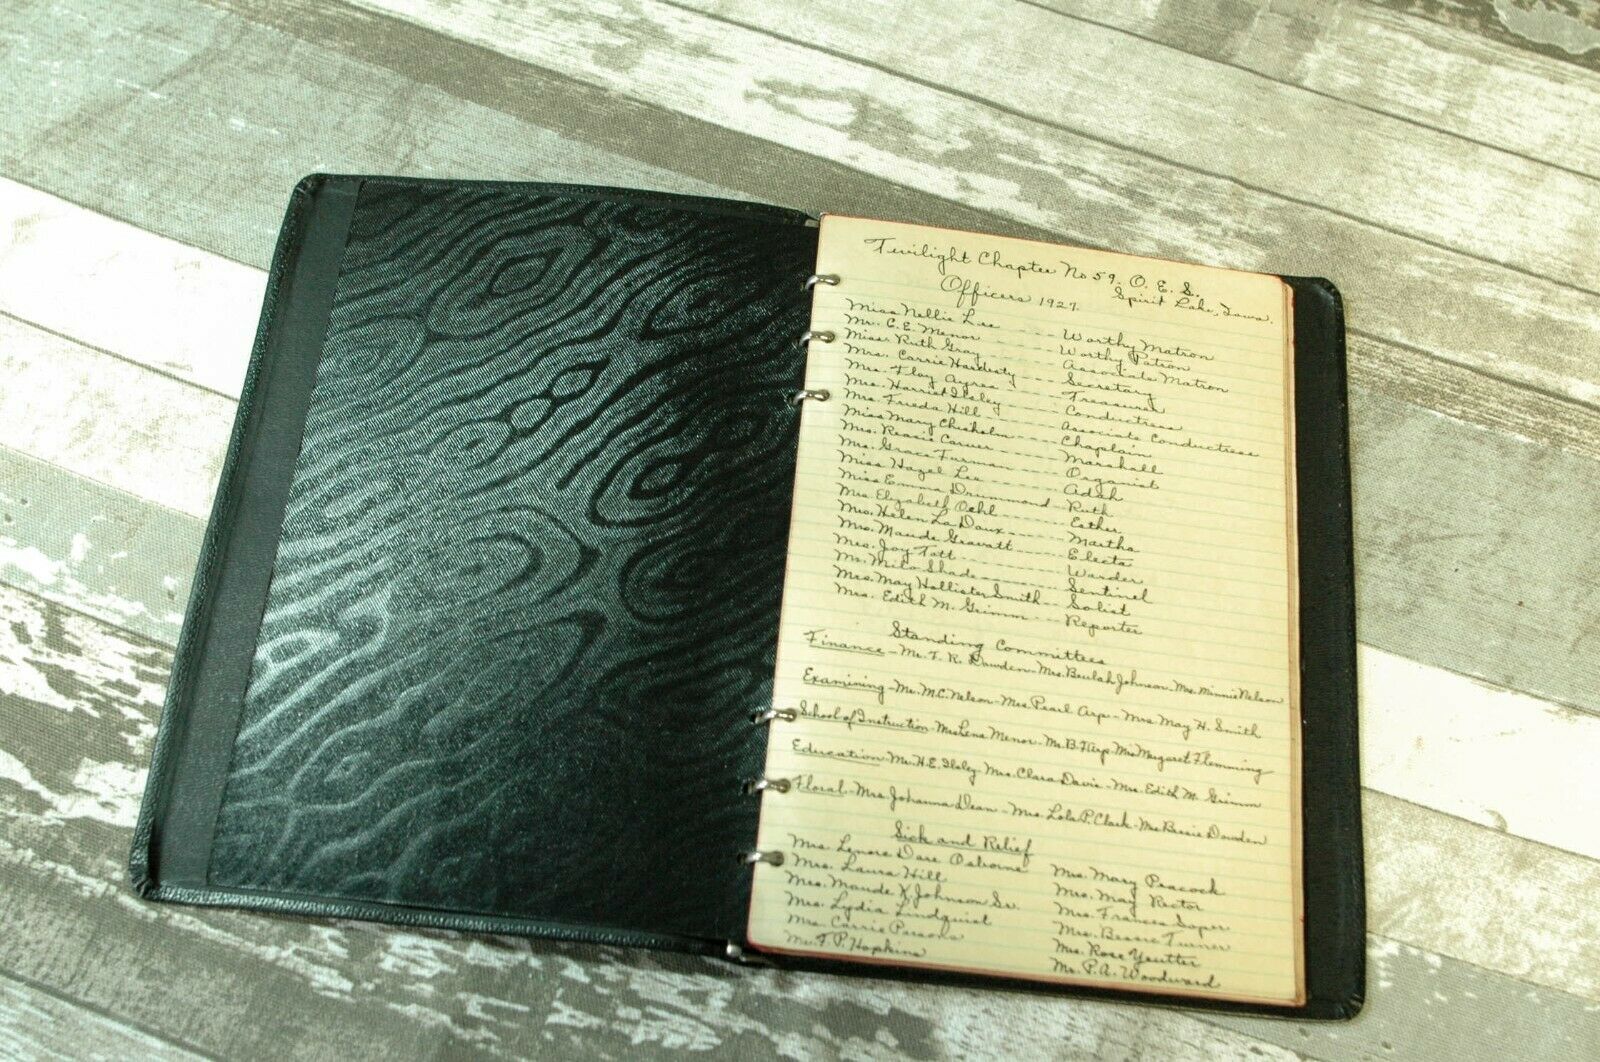 Twilight Chapter No 59. O. E. S.
Spirit Lake, Iowa.
Officers 1927.
Miss Nellie Lee ---- Worthy Matron
Mr. C.E. Menor ---- Worthy Patron
Miss. Ruth Gray ---- Associate Matron
Mrs. Carrie Hardesty ---- Secretary
Mrs. Floy Ayres ---- Treasurer
Mrs. Harriet Ilsley ---- Conductress
Mrs. Frieda Hill ---- Associate Conductress
Miss Mary Chisholm ---- Chaplain
Mrs. Reasie Carver ---- Marshall
Mrs. Grace Furman ---- Organist
Miss Hazel Lee ---- Adah
Miss Emma Drummond - Ruth
Mrs Elizabeth Oehl ---- Esther
Mrs. Helen La Doux ---- Martha
Mrs. Maude Gravatt ---- Electa
Mrs. Joy Tott ---- Warder
Mr. Milo Shade ---- Sentinel
Mrs. May Hollister Smith -- Soloist
Mrs. Edith M. Grimm --- Reporter
Standing Committees
Finance - Mr. F. R. Dowden - Mrs. Beulah Johnson - Mrs. Minnie Nelson
Examining - Mr. M.C. Nelson - Mrs. Pearl Arp - Mrs. May H. Smith
School of Instruction - Lena Menor - Mr. B.F. Arp Mrs Margaret Flemming
Education - Mr. H.E. Ilsley - Mrs. Clara Davis - Mrs. Edith M. Grimm
Floral - Mrs. Johanna Dean - Mrs. Lola P. Clark - Mrs Bessie Dowden
Sick and Relief
Mrs. Lenore Dare Osborne
Mrs. Laura Hill
Mrs. Maude K. Johnson Sr.
Mrs. Lydia Lindquist
Mrs. Carrie Parsons
Mr. F. P. Hopkins
Mrs. Mary Peacock
Mrs. May Rector
Mrs. Frances Soper
Mrs. Bessie Turner
Mrs. Rose
Mr. P.A. Woodward